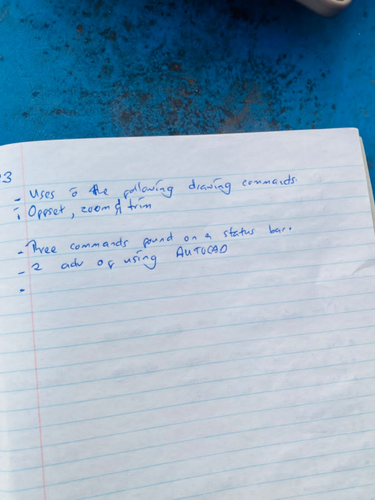 03
- Uses o the following drawing commands.
i Offset, zoom & trim
- Three commands found on a status bar.
- 2 adv of using AUTOCAD
-